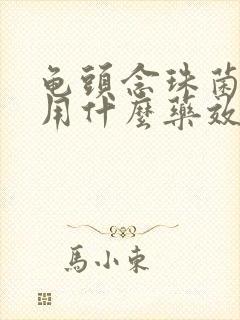 龟頭念珠菌
用什麼藥效
馬小東